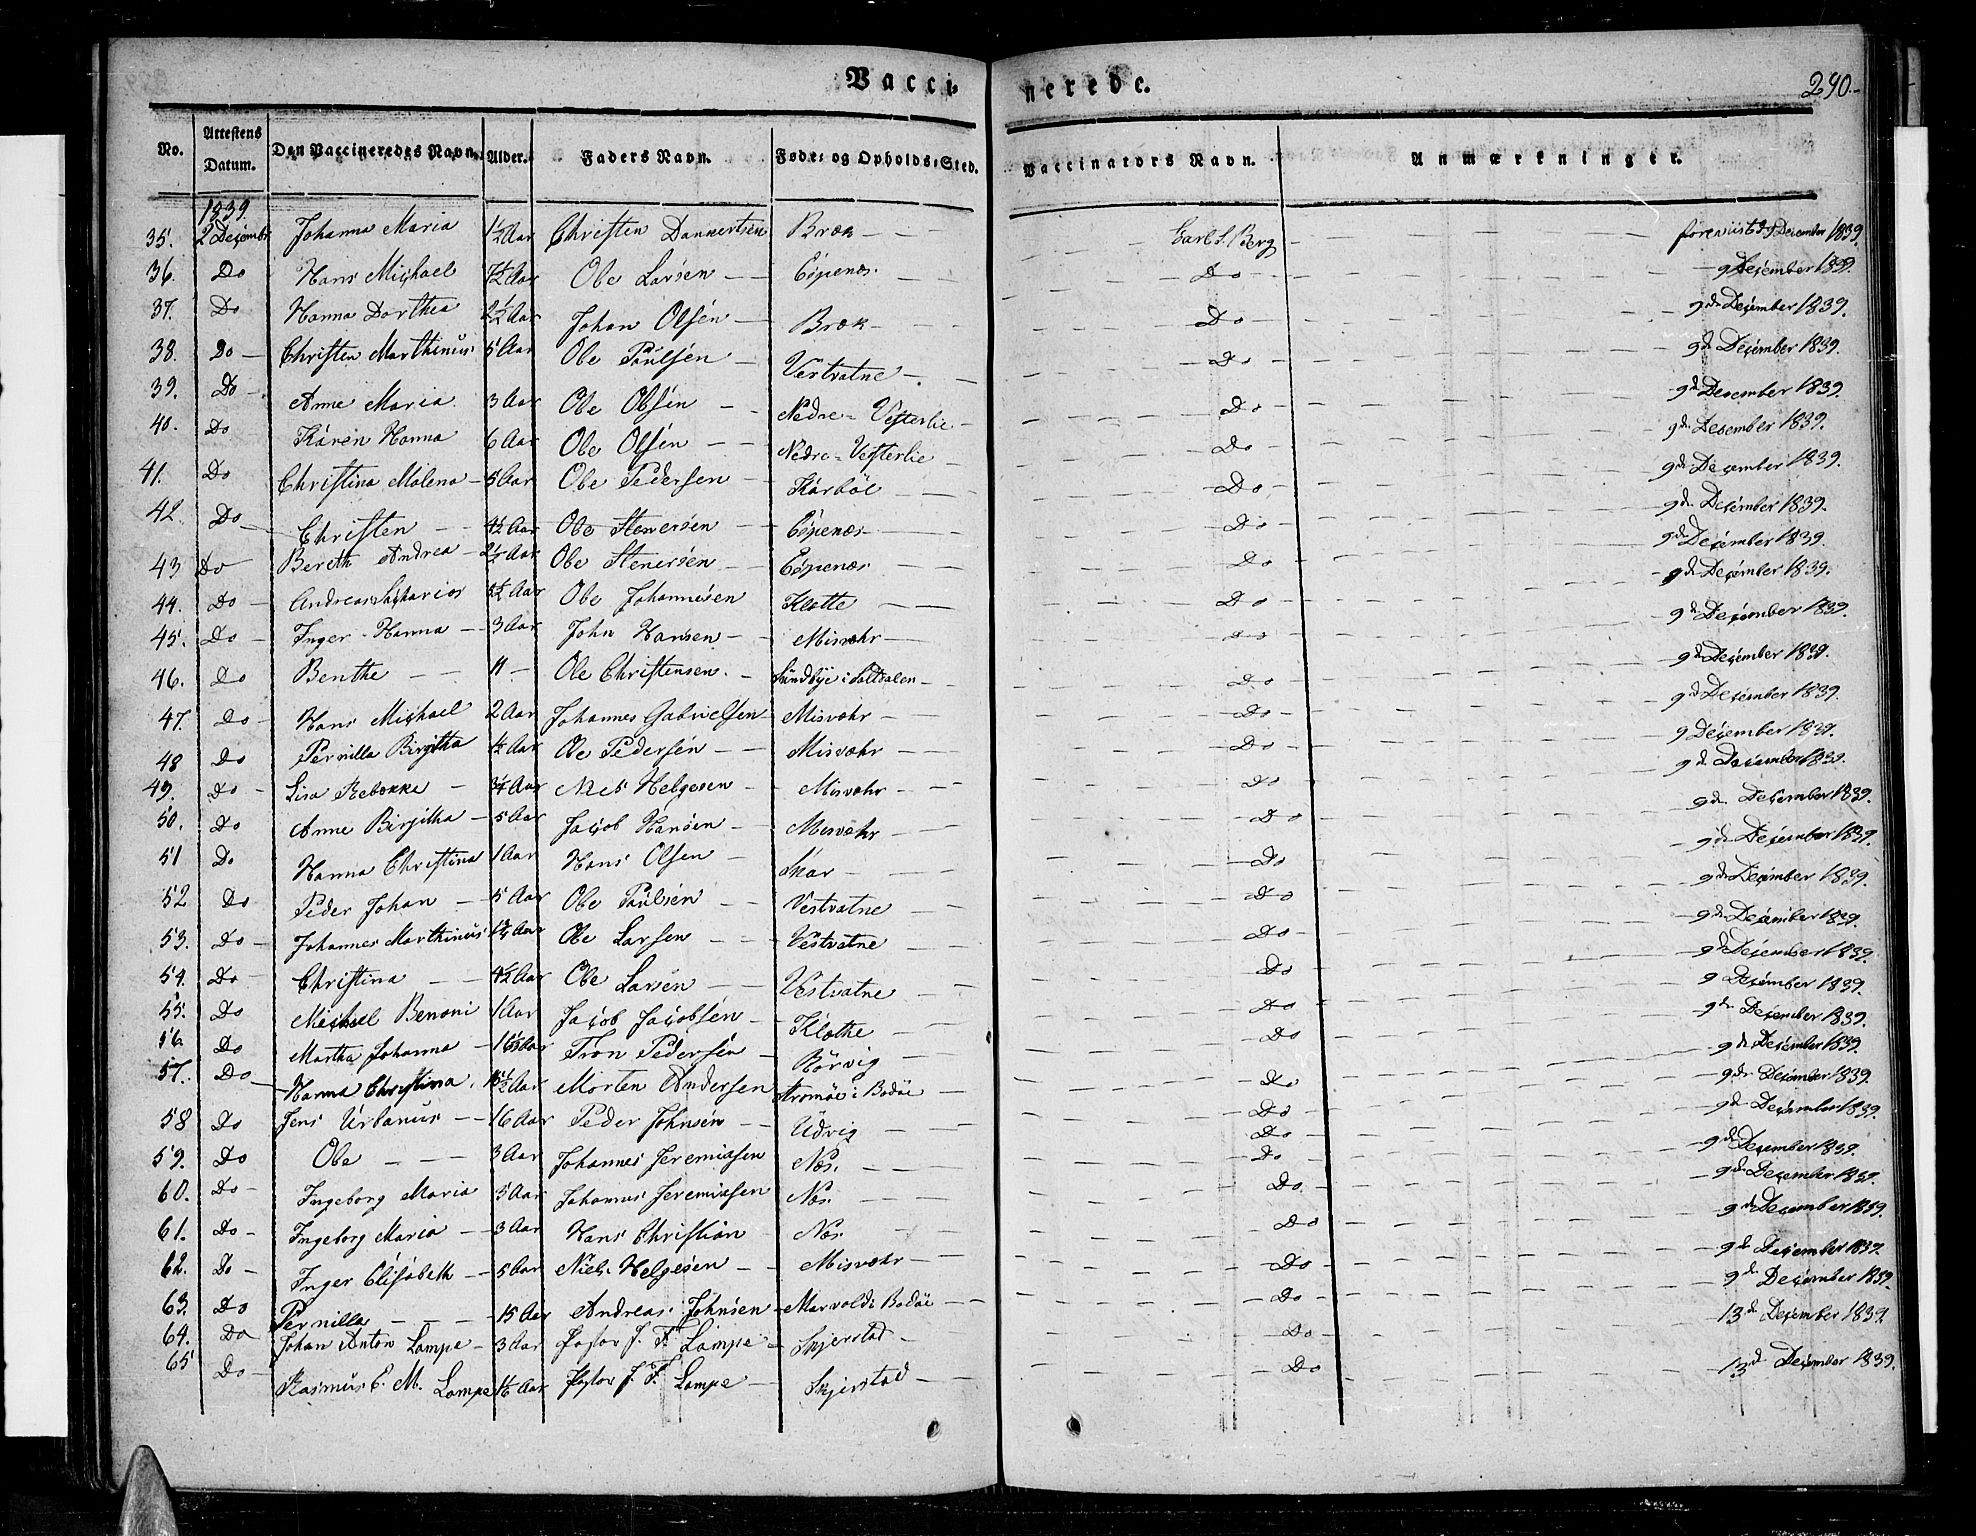 Vacci- nerede. 290.
No. Attestens Datum. Den Vaccineredes Navn. Alder. Faders Navn. Føde- og Opholds-Sted. Vaccinators Navn. Anmærkninger.
1839
35. 2 December Johanna Maria 1½ Aar Christen Dankertsen Bræk Carl S. Berg foreviist 9 December 1839.
36. Do Hans Michael 7½ Aar Ole Larsen Espenæs Do 9 December 1839.
37. Do Hanna Dorthea 2½ Aar Johan Olsen Bræk Do 9de December 1839.
38. Do Christen Marthinus 5 Aar Ole Paulsen Vestvatne Do 9de December 1839.
39. Do Anne Maria 3 Aar Ole Olsen Nedre-Vesterlie Do 9de December 1839.
40. Do Karen Hanna 6 Aar Ole Olsen Nedre-Vesterlie Do 9de December 1839.
41. Do Christina Malena 5 Aar Ole Pedersen Karbøl Do 9de December 1839.
42. Do Christen 4½ Aar Ole Stenersen Espenæs Do 9de December 1839.
43 Do Bereth Andrea 2½ Aar Ole Stenersen Espenæs Do 9de December 1839.
44. Do Andreas Aar Ole Johannesen Kløtte Do 9de December 1839.
45. Do Inger Hanna 3 Aar John Hansen Misvær Do 9de December 1839.
46. Do Benthe 11 Ole Christensen Sundbye i Saltdalen Do 9de December 1839.
47. Do Hans Michael 2 Aar Johannes Gabrielsen Misvær Do 9de December 1839.
48 Do Pernilla Birgitha Aar Ole Pedersen Misvær Do 9 December 1839.
49. Do Lisa Rebekka Aar Niels Helgesen Misvær Do 9de December 1839.
50. Do Anne Birgitha 5 Aar Jacob Hansen Misvær Do 9de December 1839.
51 Do Hanna Christina 1 Aar Hans Olsen Skar Do 9de December 1839.
52 Do Peder Johan 5 Aar Ole Paulsen Vestvatne Do 9de December 1839.
53. Do Johannes Marthinus Aar Ole Larsen Vestvatne Do 9de December 1839.
54. Do Christina 4½ Aar Ole Larsen Vestvatne Do 9de December 1839.
55. Do Michael Benoni 1 Aar Jacob Jacobsen Kløthe Do 9 December 1839.
56 Do Martha Johanna Aar Tron Pedersen Rørvig Do 9de December 1839.
57. Do Hanna Christina Aar Morten Andersen Strømøe i Bodøe Do 9de December 1839.
58 Do Jens Urbanus 16 Aar Peder Johnsen Udvig Do 9de December 1839.
59. Do Ole 3 Aar Johannes Jeremiasen Næs. Do 9de December 1839.
60. Do Ingeborg Maria 5 Aar Johannes Jeremiasen Næs Do 9de December 1839.
61. Do Ingeborg Maria 3 Aar Hans Christian Næs Do 9de December 1839.
62. Do Inger Elisabeth 5 Aar Niels Helgesen Misvær Do 9de December 1839.
63. Do Pernilla 15 Aar Andreas Johnsen i Bodøe Do 9de December 1839.
64. Do Johan Anton Lampe 3 Aar Pastor J. F. Lampe Skjerstad Do 13de December 1839.
65 Do Rasmus E. M. Lampe Aar Pastor J. F. Lampe Skjerstad Do 13de December 1839.